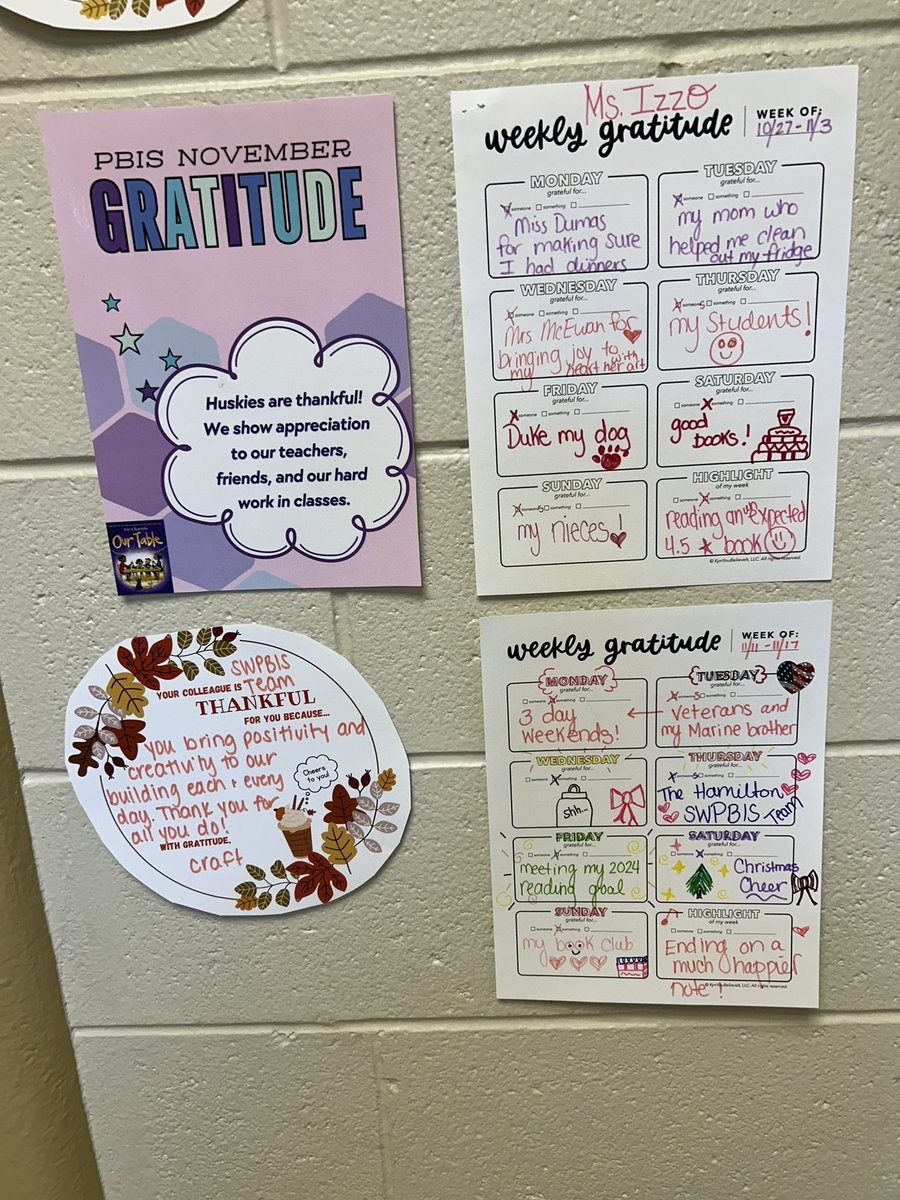 PBIS NOVEMBER
GRATITUDE
Huskies are thankful!
We show appreciation
to our teachers,
friends, and our hard
work in classes.
Our Table
Ms. Izzo
weekly gratitude
WEEK OF:
10/27-11/3
MONDAY
grateful for...
someone something
Miss Dumas
for making sure
I had dinners
TUESDAY
grateful for...
someone something
my mom who
helped me clean
out my fridge
WEDNESDAY
grateful for...
someone something
Mrs McEwan for
bringing joy to
my heart with
her art
THURSDAY
grateful for...
someones something
my students!
FRIDAY
grateful for...
someone something
Duke my dog
SATURDAY
grateful for...
someone something
good
books!
SUNDAY
grateful for...
someones something
my nieces!
HIGHLIGHT
of my week
someone something
reading an unexpected
4.5 ★ book
© KynYouBelieveIt, LLC. All rights reserved.
SWPBIS
YOUR COLLEAGUE IS Team
THANKFUL
FOR YOU BECAUSE...
you bring positivity and
creativity to our
building each + every
day. Thank you for
all you do!
WITH GRATITUDE,
Craft
Cheers
to you!
weekly gratitude
WEEK OF:
11/11-11/17
MONDAY
grateful for...
someone something
3 day
weekends!
TUESDAY
grateful for...
someones something
Veterans and
my Marine brother
WEDNESDAY
grateful for...
someone something
shh...
THURSDAY
grateful for...
someones something
The Hamilton
SWPBIS Team
FRIDAY
grateful for...
someone something
meeting my 2024
reading goal
SATURDAY
grateful for...
someone something
Christmas
Cheer
SUNDAY
grateful for...
someone something
my book club
HIGHLIGHT
of my week
someone something
Ending on a
much happier
note!
© KynYouBelieveIt, LLC. All rights reserved.